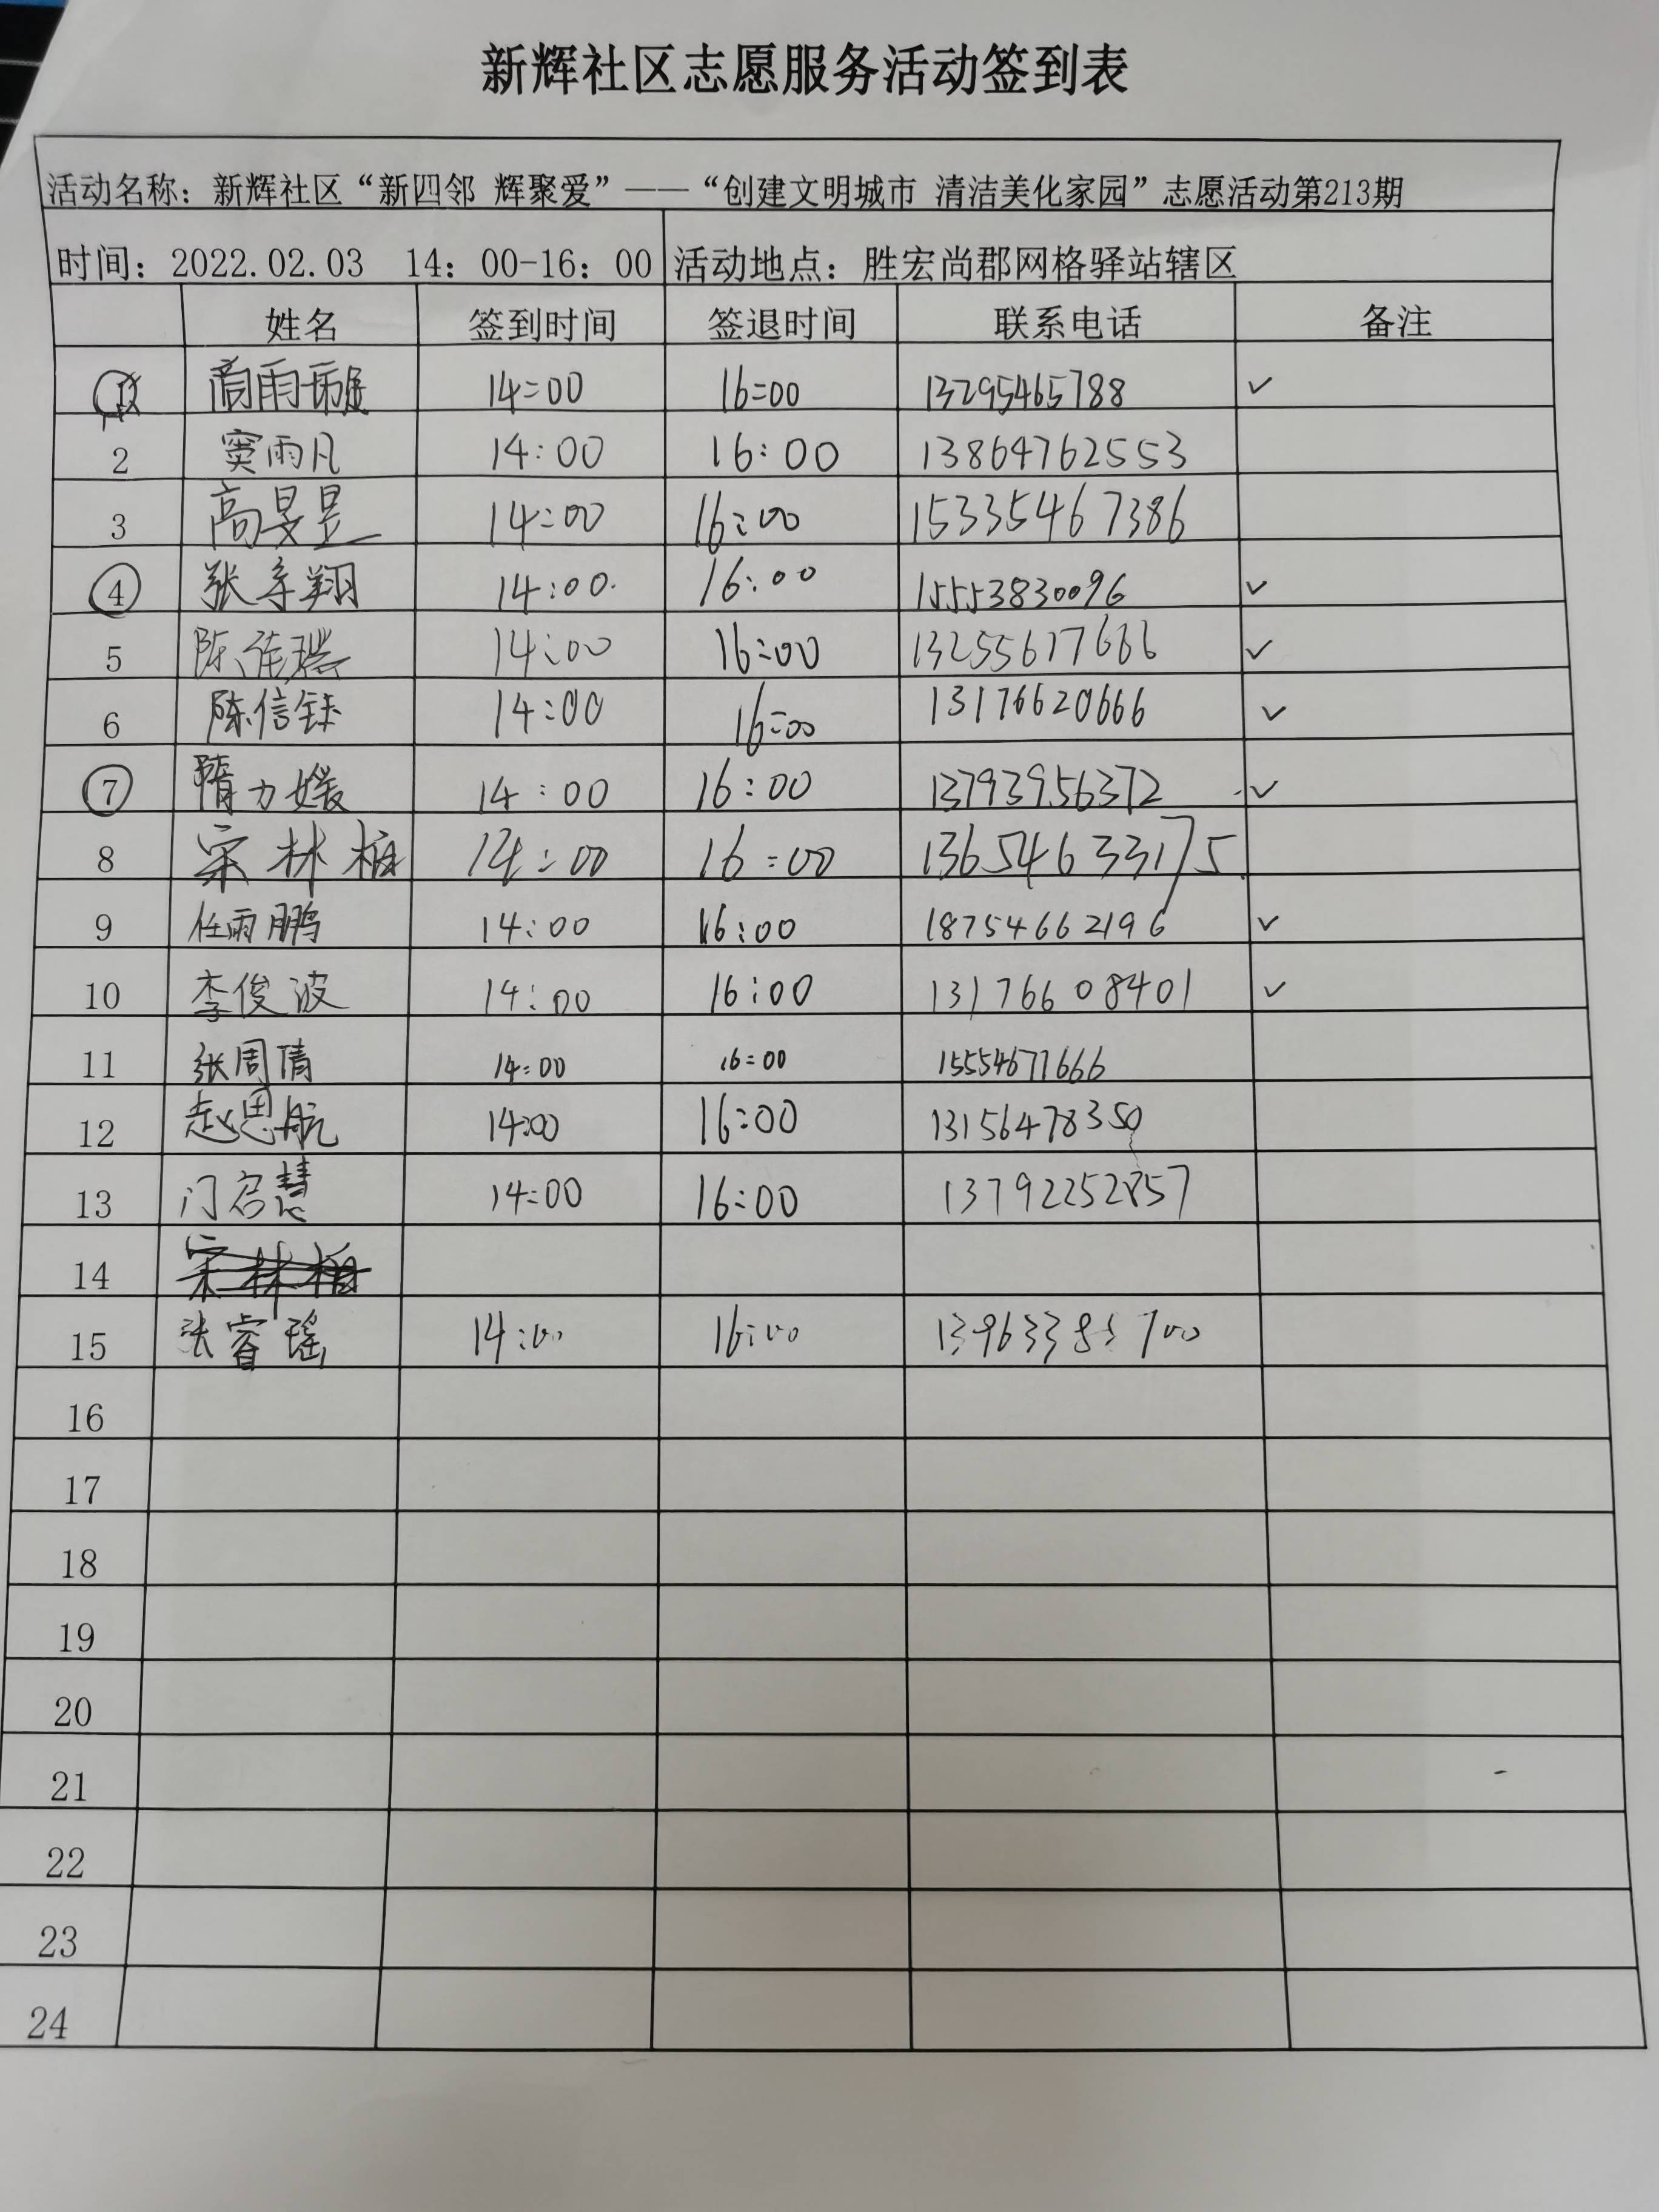 新辉社区志愿服务活动签到表
活动名称：新辉社区“新四邻 辉聚爱”——“创建文明城市 清洁美化家园”志愿活动第213期
时间：2022.02.03 14：00-16：00 活动地点：胜宏尚郡网格驿站辖区
姓名 签到时间 签退时间 联系电话 备注
1 雨 14:00 16:00 13295465788 ✓
2 窦雨凡 14:00 16:00 13864762553
3 高旻昱 14:00 16:00 15335467386
4 张翔 14:00 16:00 15553830096 ✓
5 陈佳瑞 14:00 16:00 13255617666 ✓
6 陈信铄 14:00 16:00 13176620666 ✓
7 隋力媛 14:00 16:00 13793956372 ✓
8 宋林桓 14:00 16:00 13654633175
9 任雨鹏 14:00 16:00 18754662196 ✓
10 李俊波 14:00 16:00 13176608401 ✓
11 张周倩 14:00 16:00 15554677666
12 赵思航 14:00 16:00 13156478350
13 门启慧 14:00 16:00 13792252857
14 宋林
15 张睿瑶 14:00 16:00
16
17
18
19
20
21
22
23
24